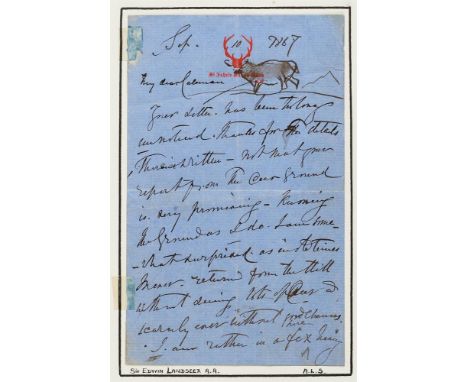 Sep. 10 1867
St John's Wood Road
My dear Coleman
Your letter has been too long
unnoticed. Thanks for the details
therein written - not that your
report from the Ground
is very promising - Knowing
the Ground as I do. I am some-
-what surprised as in
never returned from the Hill
without seeing lots of and
scarcely ever without good Chances
here
I am rather in a fix being
SIR EDWIN LANDSEER R.A.
A.L.S.